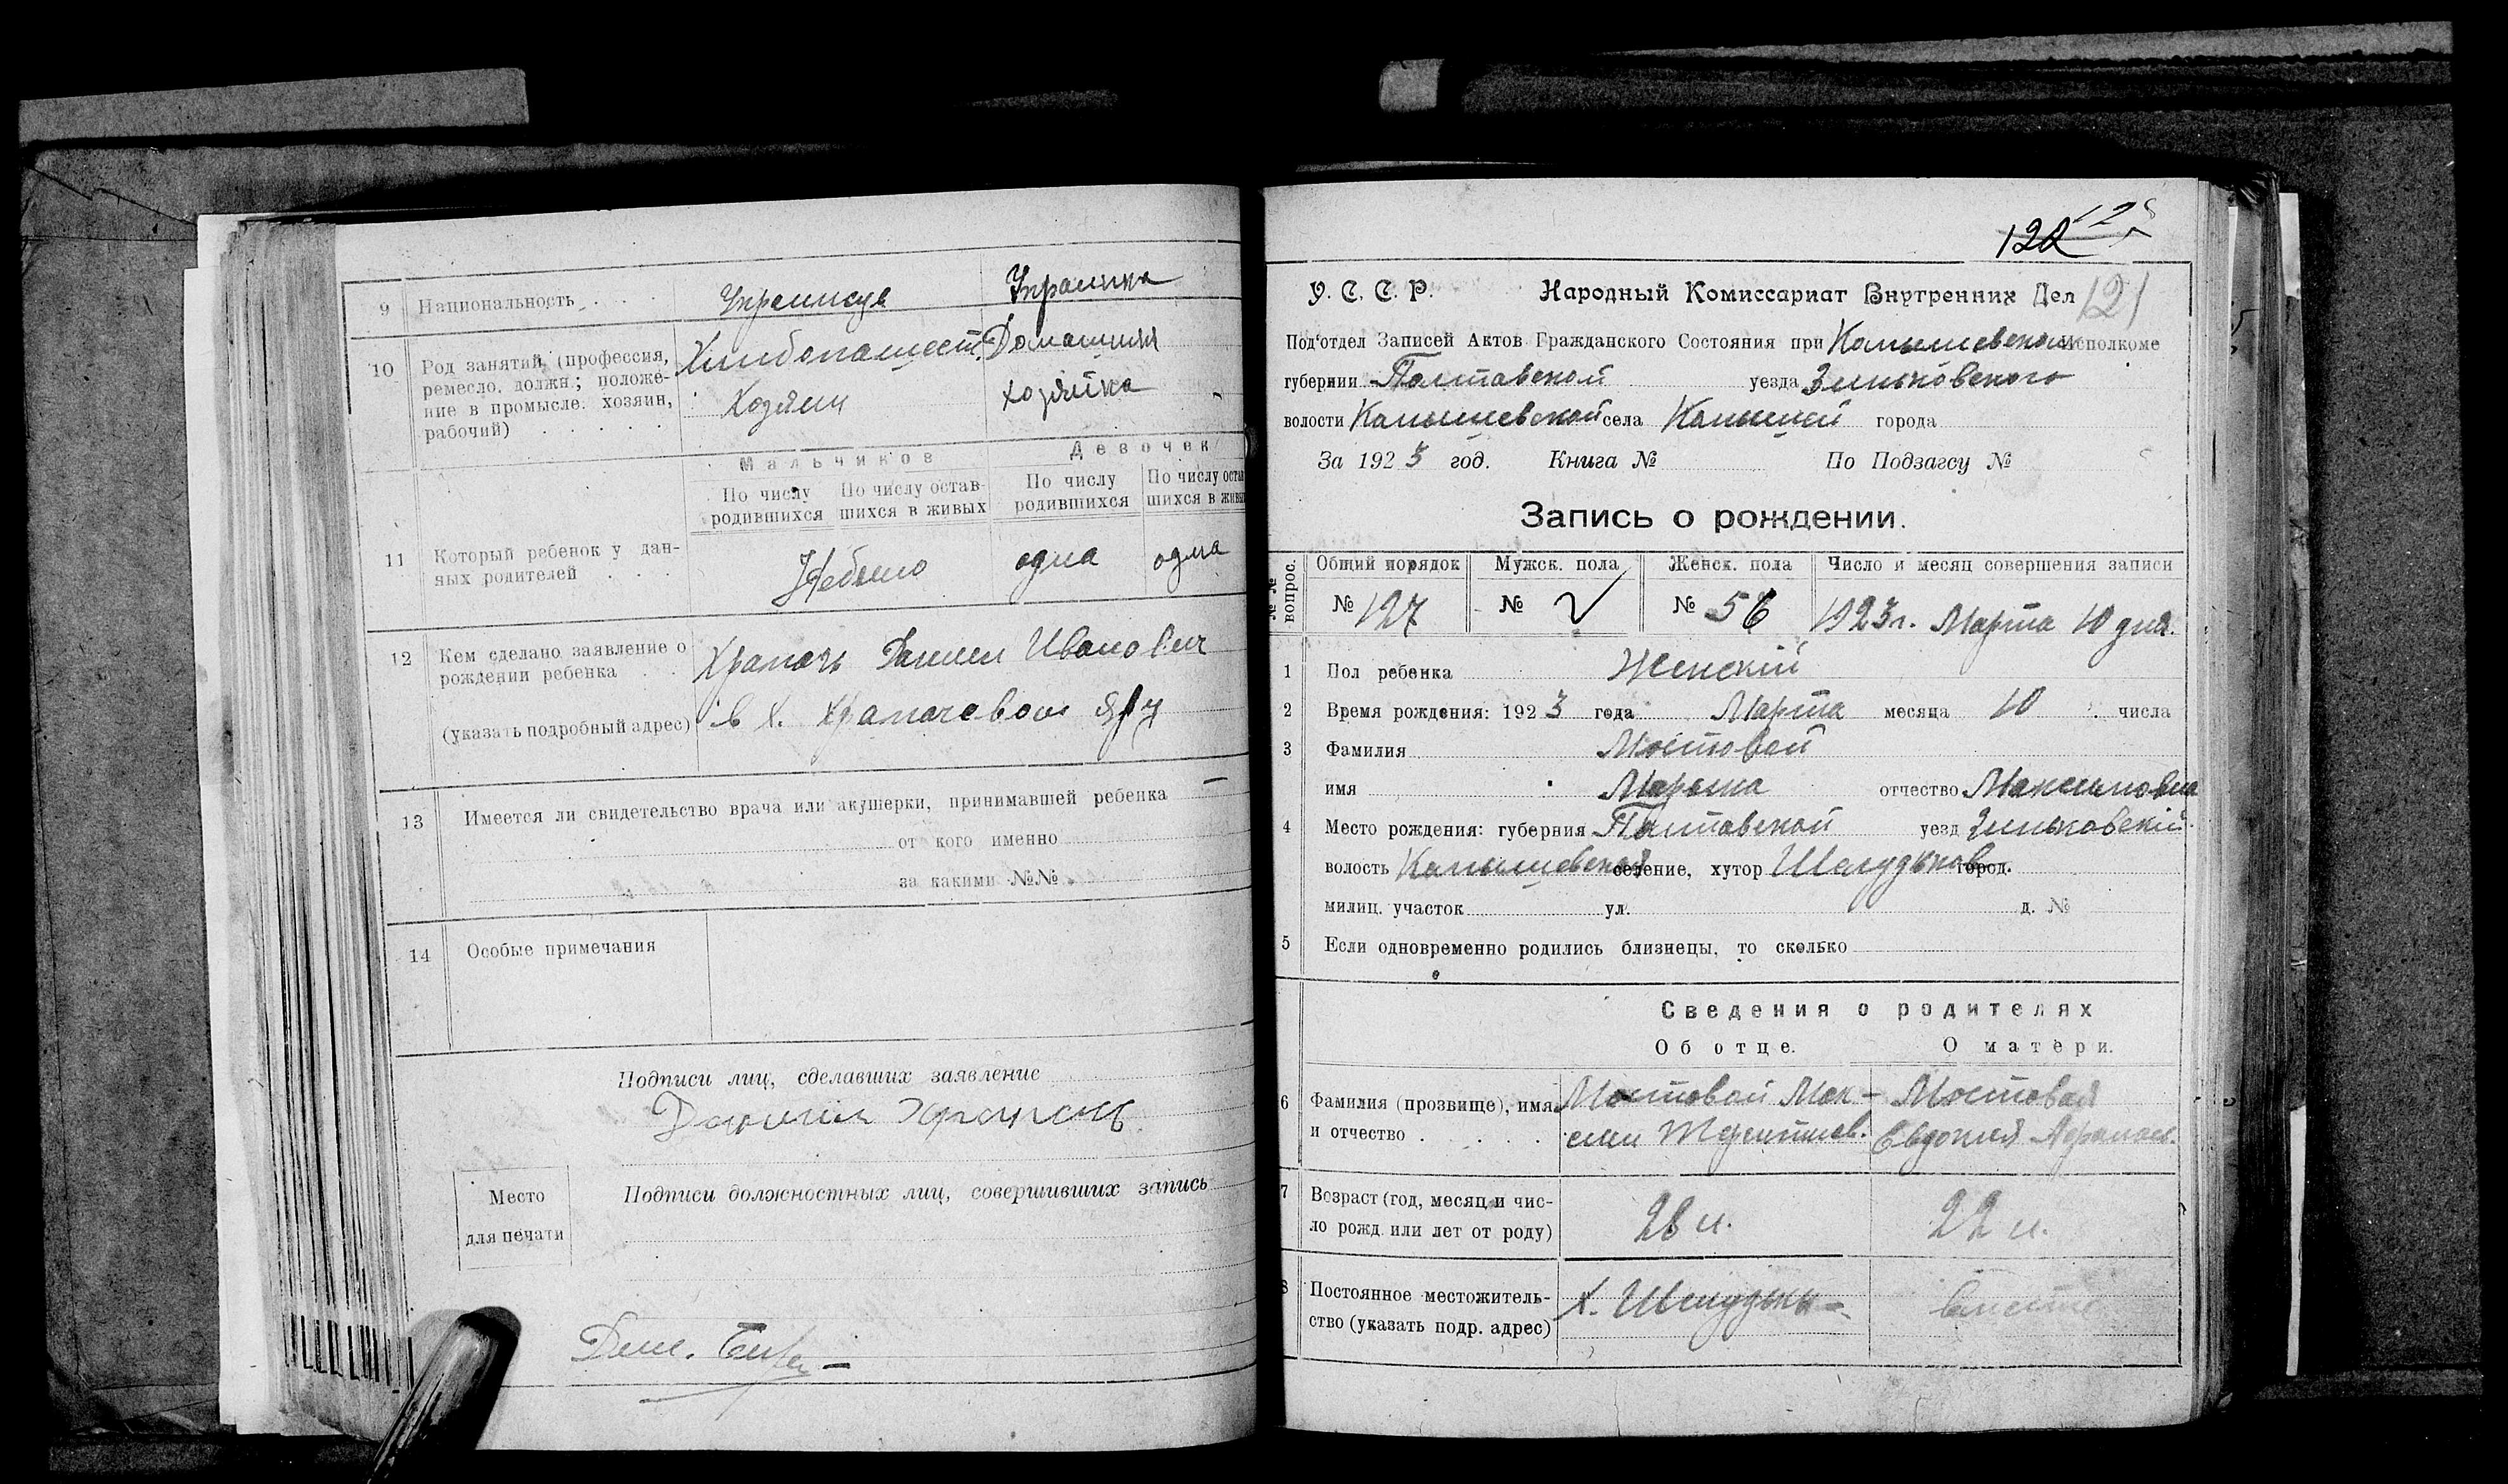 9 Национальность . . . Украинск Украинка
10 Род занятий, (профессия, ремесло, должн.; положе-
ние в промысле: хозяин,
рабочий) . . . . .
Хлибопашест. Домашняя
Хозяин хозяйка
Мальчиков Девочек
По числу родившихся По числу остав-
шихся в живых По числу родившихся По числу остав
шихся в живы
11 Который ребенок у дан-
ных родителей . . .
Небыло одна одна
12 Кем сделано заявление о
рождении ребенка . .
(указать подробный адрес)
Храпачь Данил Иванович
в х. Храпачевом Яру
13 Имеется ли свидетельство врача или акушерки, принимавшей ребенка —
от кого именно
за какими №№
14 Особые примечания
Подписи лиц, сделавших заявление
Данило Храпачь
Место
для печати
Подписи должностных лиц, совершивших запись
122
121
У. С. С. Р. Народный Комиссариат Внутренних Дел
Под'отдел Записей Актов Гражданского Состояния при Камышевском Исполкоме
губернии Полтавской уезда Зиньковского
волости Камышевской села Камышей города
За 1923 год. Книга № По Подзагсу №
Запись о рождении.
№№ вопрос. Общий порядок Мужск. пола Женск. пола Число и месяц совершения записи
№ 127 № № 56 1923г. Марта 10 дня.
1 Пол ребенка Женский
2 Время рождения: 1923 года Марта месяца 10 числа
3 Фамилия Мостовой
имя Марына отчество Максимовна
4 Место рождения: губерния Полтавской уезд Зиньковский
волость Камышевской селение, хутор Шелудьков город.
милиц. участок ул. д. №
5 Если одновременно родились близнецы, то сколько
Сведения о родителях
Об отце. О матери.
6 Фамилия (прозвище), имя
и отчество . . . . .
Мостовой Мак- Мостовая
сим Терентиев. Евдокия Афанас.
7 Возраст (год, месяц и чис-
ло рожд. или лет от роду)
28 л. 22 л.
8 Постоянное местожитель-
ство (указать подр. адрес)
х. Шелудьки вместе